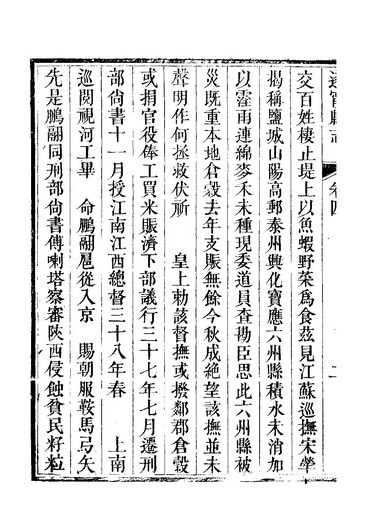 遂寧縣志
卷四
交百姓棲止堤上以魚蝦野菜爲食茲見江蘇巡撫宋犖
揭稱鹽城山陽高郵泰州興化寶應六州縣積水未消加
以霪雨連綿麥禾未種現委道員查勘臣思此六州縣被
災既重本地倉穀去年支賑無餘今秋成絶望該撫並未
聲明作何拯救伏祈 皇上勅該督撫或撥鄰郡倉穀
或捐官役俸工買米賑濟下部議行三十七年七月遷刑
部尚書十一月授江南江西總督三十八年春 上南
巡閱視河工畢 命鵬翮扈從入京 賜朝服鞍馬弓矢
先是鵬翮同刑部尚書傅喇塔察審陝西侵蝕貧民籽粒